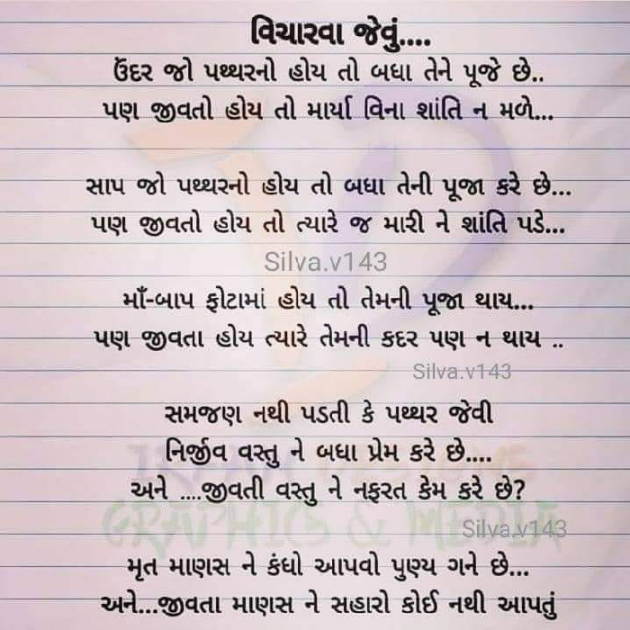 વિચારવા જેવું....
ઉંદર જો પથ્થરનો હોય તો બધા તેને પૂજે છે..
પણ જીવતો હોય તો માર્યા વિના શાંતિ ન મળે...
સાપ જો પથ્થરનો હોય તો બધા તેની પૂજા કરે છે...
પણ જીવતો હોય તો ત્યારે જ મારી ને શાંતિ પડે...
Silva.v143
માઁ-બાપ ફોટામાં હોય તો તેમની પૂજા થાય...
પણ જીવતા હોય ત્યારે તેમની કદર પણ ન થાય ..
Silva.v143
સમજણ નથી પડતી કે પથ્થર જેવી
નિર્જીવ વસ્તુ ને બધા પ્રેમ કરે છે....
અને ....જીવતી વસ્તુ ને નફરત કેમ કરે છે?
GRAPHICS & MEDIA
Silva.v143
મૃત માણસ ને કંધો આપવો પુણ્ય ગને છે...
અને...જીવતા માણસ ને સહારો કોઈ નથી આપતું